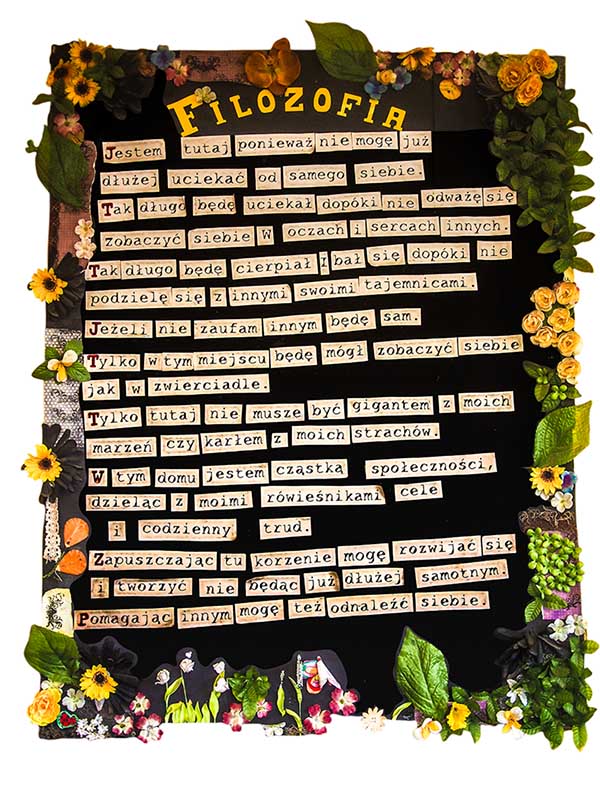 FILOZOFIA
Jestem tutaj ponieważ nie mogę już
dłużej uciekać od samego siebie.
Tak długo będę uciekał dopóki nie odważę się
zobaczyć siebie w oczach i sercach innych.
Tak długo będę cierpiał i bał się dopóki nie
podzielę się z innymi swoimi tajemnicami.
Jeżeli nie zaufam innym będę sam.
Tylko w tym miejscu będę mógł zobaczyć siebie
jak w zwierciadle.
Tylko tutaj nie muszę być gigantem z moich
marzeń czy karłem z moich strachów.
W tym domu jestem cząstką społeczności,
dzieląc z moimi rówieśnikami cele
i codzienny trud.
Zapuszczając tu korzenie mogę rozwijać się
i tworzyć nie będąc już dłużej samotnym.
Pomagając innym mogę też odnaleźć siebie.